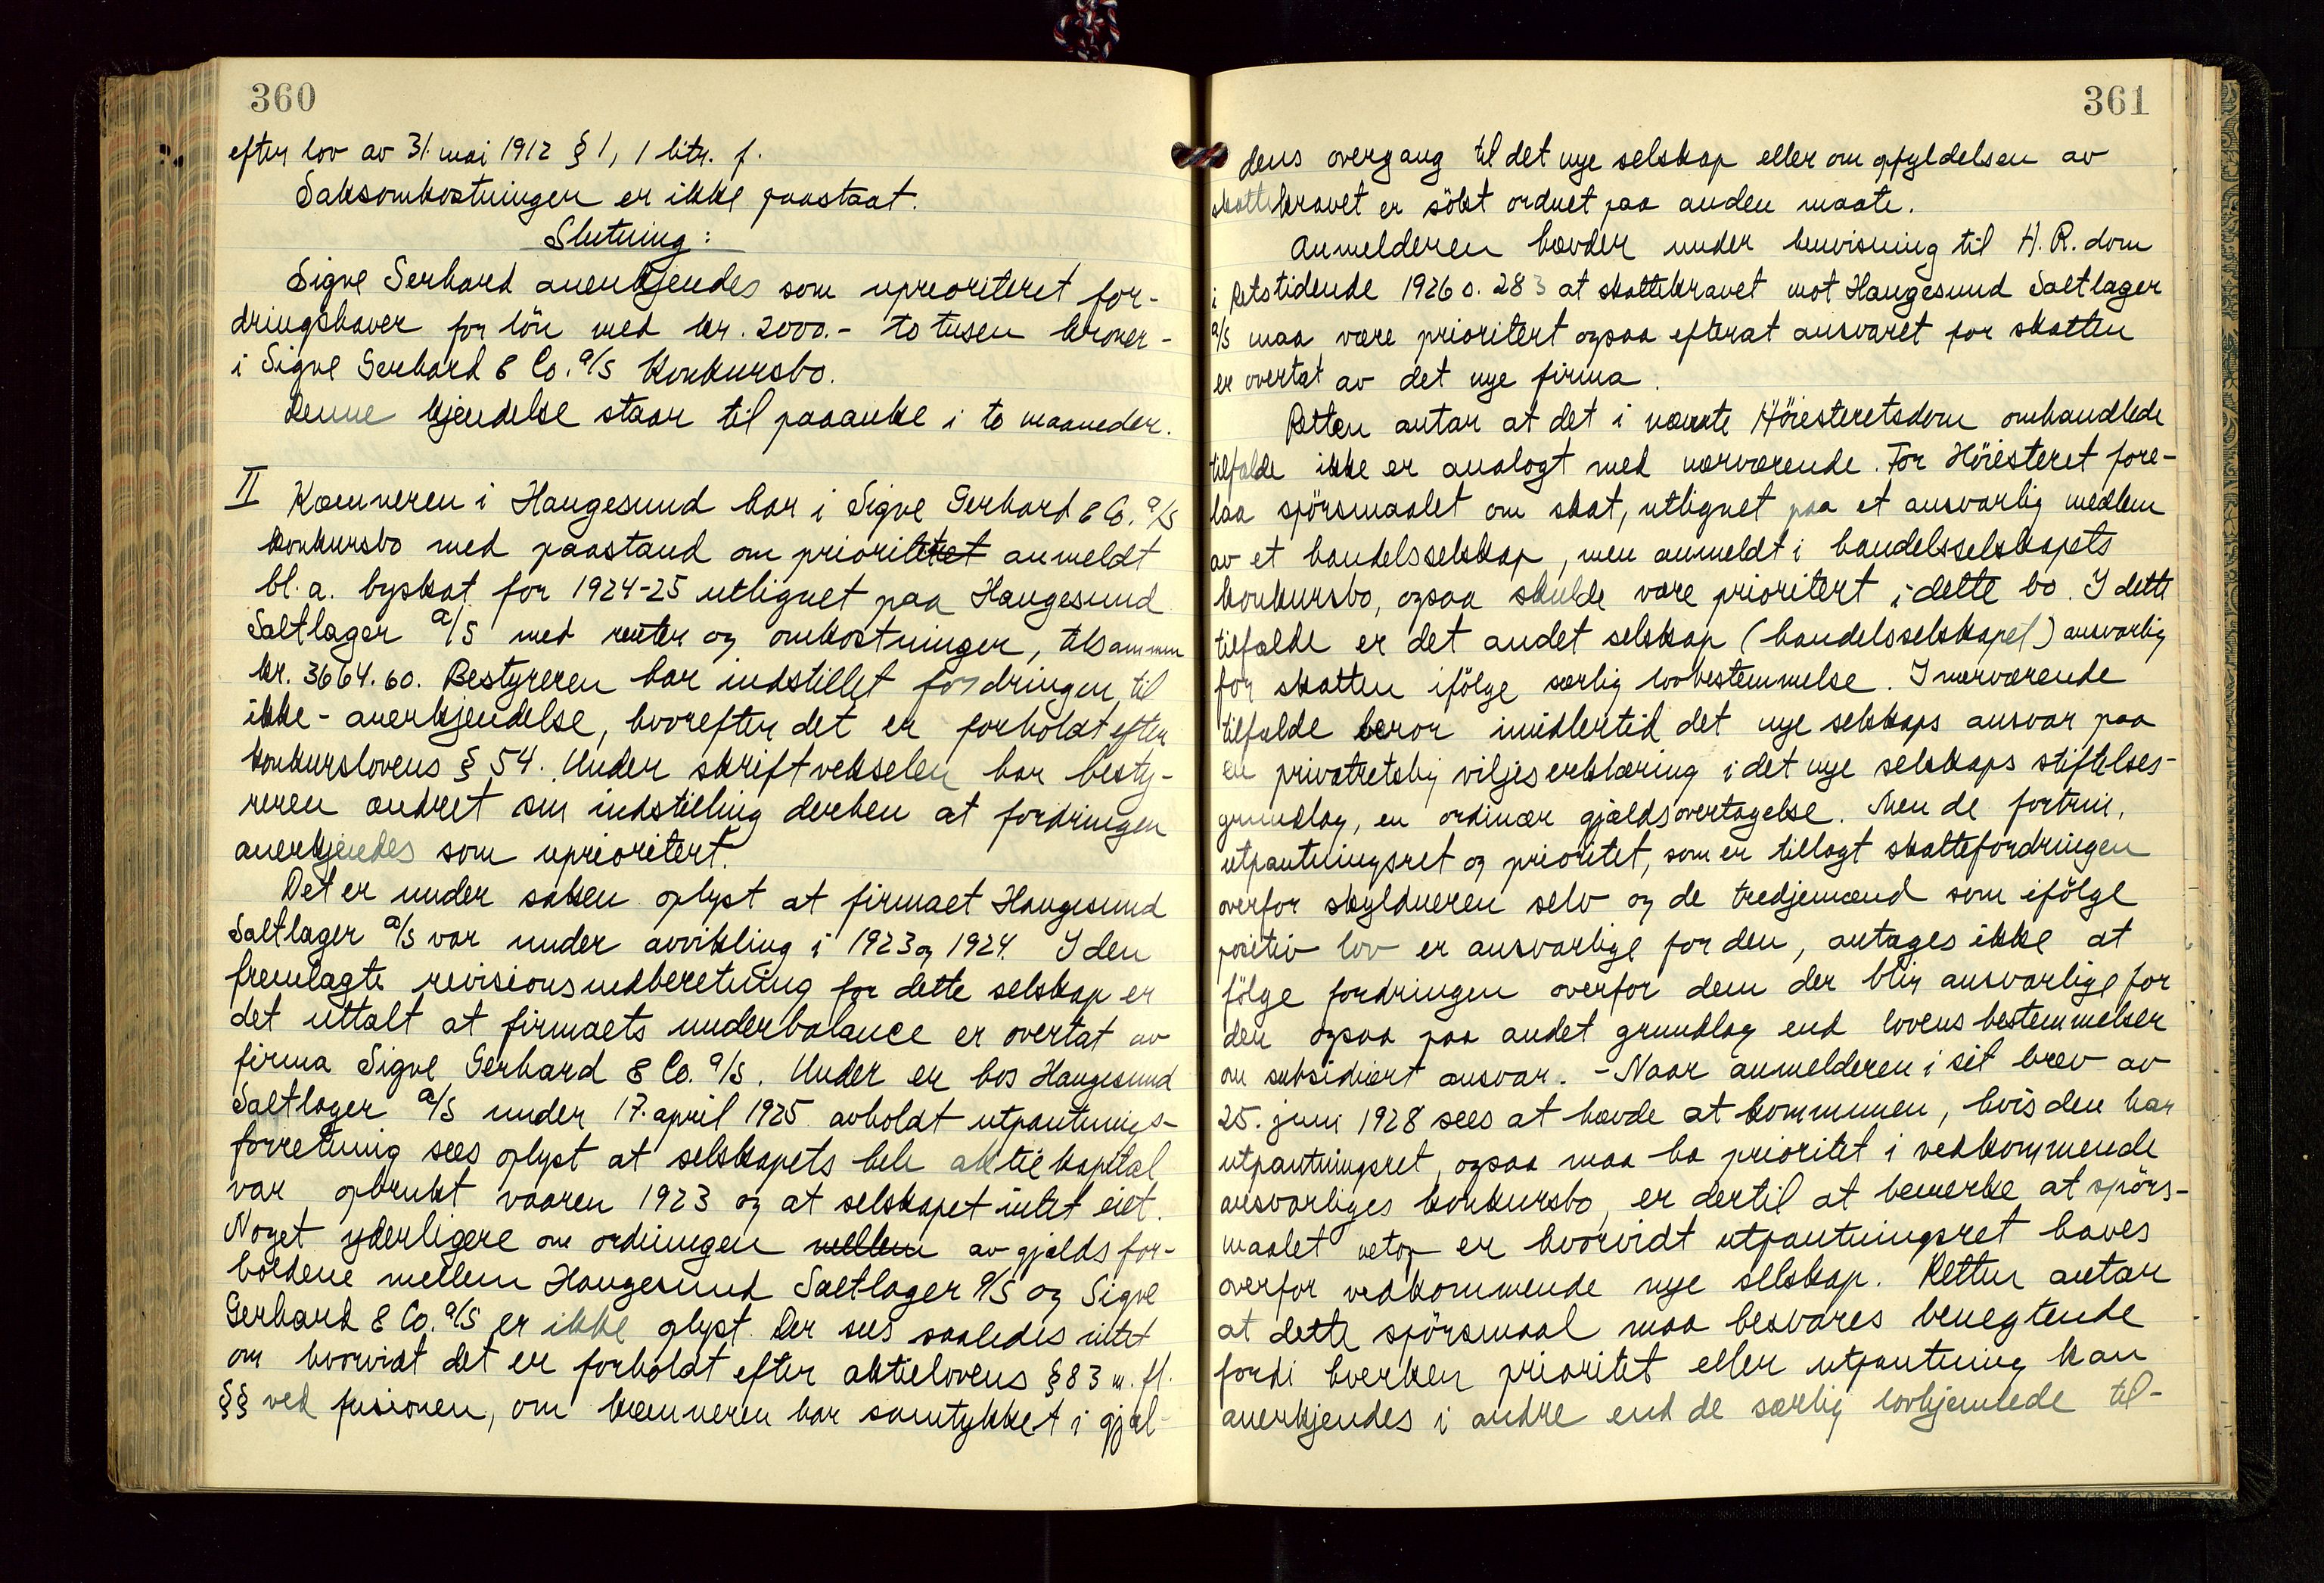 360
efter lov av 31. mai 1912 § 1, 1 litr. f.
Saksomkostninger er ikke paastaat.
Slutning:
Signe Gerhard anerkjendes som uprioriteret for-
dringshaver for lön med kr. 2000.- to tusen kroner -
i Signe Gerhard & Co. a/s konkursbo.
Denne kjendelse staar til paaanke i to maaneder.
II Kæmneren i Haugesund har i Signe Gerhard & Co. a/s
konkursbo med paastand om prioritetet anmeldt
bl. a. byskat for 1924-25 utlignet paa Haugesund
Saltlager a/s med renter og omkostninger, tilsammen
kr. 3664.60. Bestyreren har indstillet fordringen til
ikke-anerkjendelse, hvorefter det er forholdt efter
konkurslovens § 54. Under skriftvekselen har besty-
reren ændret sin indstilling derhen at fordringen
anerkjendes som uprioritert.
Det er under saken oplyst at firmaet Haugesund
Saltlager a/s var under avvikling i 1923 og 1924. I den
fremlagte revisionsindberetning for dette selskap er
det uttalt at firmaets underbalance er overtat av
firma Signe Gerhard & Co. a/s. Under er hos Haugesund
Saltlager a/s under 17. april 1925 avholdt utpantnings-
forretning sees oplyst at selskapets hele aktiekapital
var opbrukt vaaren 1923 og at selskapet intet eiet.
Noget yderligere om ordningen mellem av gjældsfor-
holdene mellem Haugesund Saltlager a/s og Signe
Gerhard & Co. a/s er ikke oplyst. Der sees saaledes intet
om hvorvidt det er forholdt efter aktielovens § 83 m. fl.
§§ ved fusionen, om kæmneren har samtykket i gjæl-
361
dens overgang til det nye selskap eller om opfyldelsen av
skattekravet er sökt ordnet paa anden maate.
Anmelderen hævder under henvisning til H. R. dom
i Retstidende 1926 s. 283 at skattekravet mot Haugesund Saltlager
a/s maa være prioritert ogsaa efterat ansvaret for skatten
er overtat av det nye firma.
Retten antar at det i nævnte Höiesteretsdom omhandlede
tilfælde ikke er analogt med nærværende. For Höiesteret fore-
laa spörsmaalet om skat, utlignet paa et ansvarlig medlem
av et handelsselskap, men anmeldt i handelsselskapets
konkursbo, ogsaa skulde være prioritert i dette bo. I dette
tilfælde er det andet selskap (handelsselskapet) ansvarlig
for skatten ifölge særlig lovbestemmelse. I nærværende
tilfælde beror imidlertid det nye selskaps ansvar paa
en privatretslig viljeserklæring i det nye selskaps stiftelses-
grundlag, en ordinær gjældsovertagelse. Men de fortrin,
utpantningsret og prioritet, som er tillagt skattefordringen
overfor skyldneren selv og de tredjemænd som ifölge
positiv lov er ansvarlige for den, antages ikke at
fölge fordringen overfor dem der blir ansvarlige for
den ogsaa paa andet grundlag end lovens bestemmelser
om subsidiært ansvar. - Naar anmelderen i sit brev av
25. juni 1928 sees at hævde at kommunen, hvis den har
utpantningsret, ogsaa maa ha prioritet i vedkommende
ansvarliges konkursbo, er dertil at bemerke at spörs-
maalet netop er hvorvidt utpantningsret haves
overfor vedkommende nye selskap. Retten antar
at dette spörsmaal maa besvares benegtende
fordi hverken prioritet eller utpantning kan
anerkjendes i andre end de særlig lovhjemlede til-